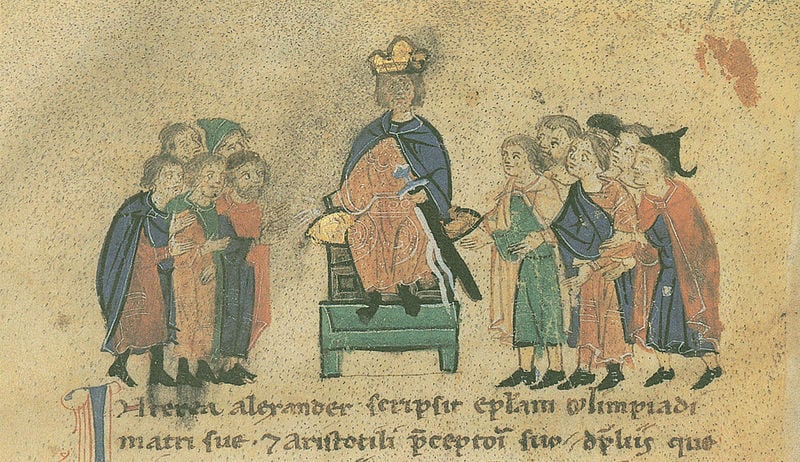 INterea alexander scripsit ep̄lam Olimpiadi
matri sue · ⁊ aristotili p̄ceptoı̄ suo · d̄ p̄liis que